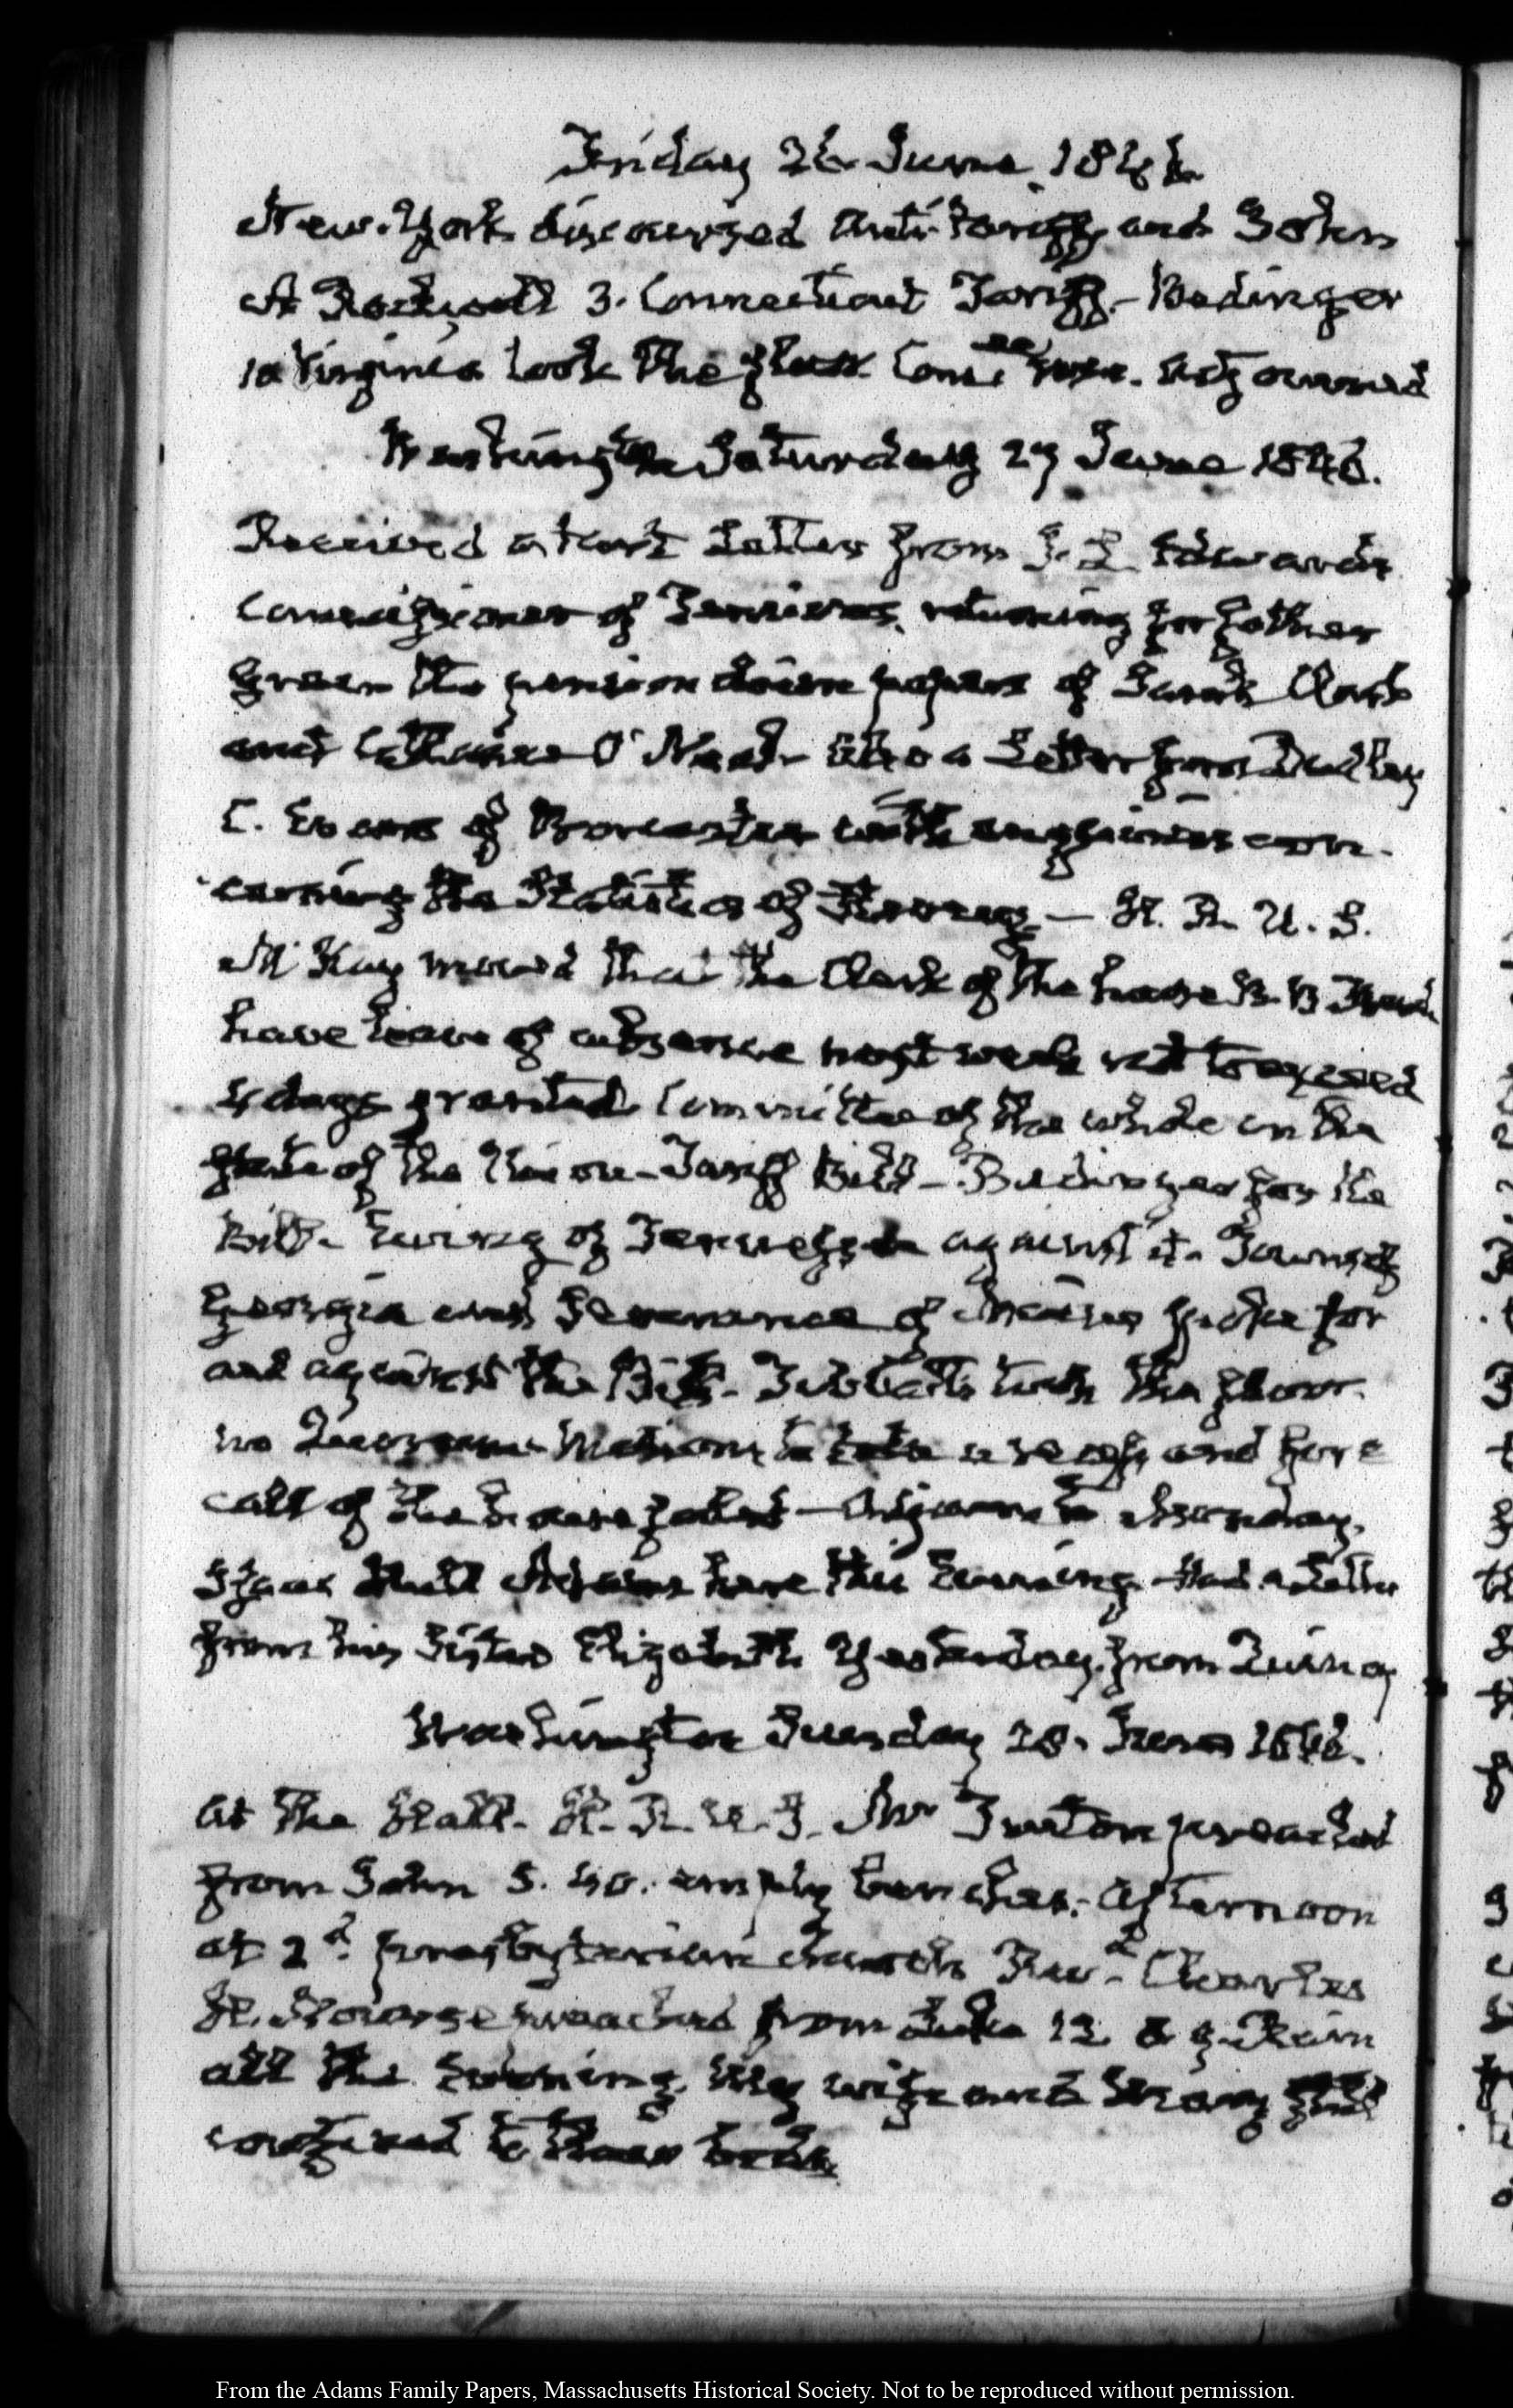 Friday 26. June. 1846.
New-York discoursed anti-tariff, and John
A Rockwell 3. Connecticut Tariff.- Bedinger
10 Virginia took the floor. Comee rose. adjourned
Washington Saturday 27 June 1846.
Received a short Letter from J. L. Edwards
Commissioner of Pensions, returning for
the pension claim papers of Sarah Clark
and O'Neal- also a Letter from Dudley
C. Evans of Worcester with enquiries con-
cerning the Statistics of Slavery.- H. R. U. S.
McKay moved that the Clerk of the house B. B French
have leave of absence next week not to exceed
days granted Committee of the whole on the
state of the Union- Tariff Bill- Bedinger for the
Bill- Ewing of Tennessee against it. Towns of
Georgia and Severance of Maine spoke for
and against the Bill- Tibbatts took the floor.
no Quorum- Motions to take a recess and for a
call of the house failed- Adjourn to Monday.
Isaac Hull Adams here this Evening. Had a Letter
from his Sister Elizabeth Yesterday, from Quincy
Washington Sunday 28. June 1846.
At the Hall. H. R. U. S. Mr Tuston preached
from John 5. 40. empty benches. Afternoon
at 2d. presbyterian church Revd. Charles
H. preached from Luke 12. 8 9. Rain
all the Evening. My wife and Mary still
confined to their beds